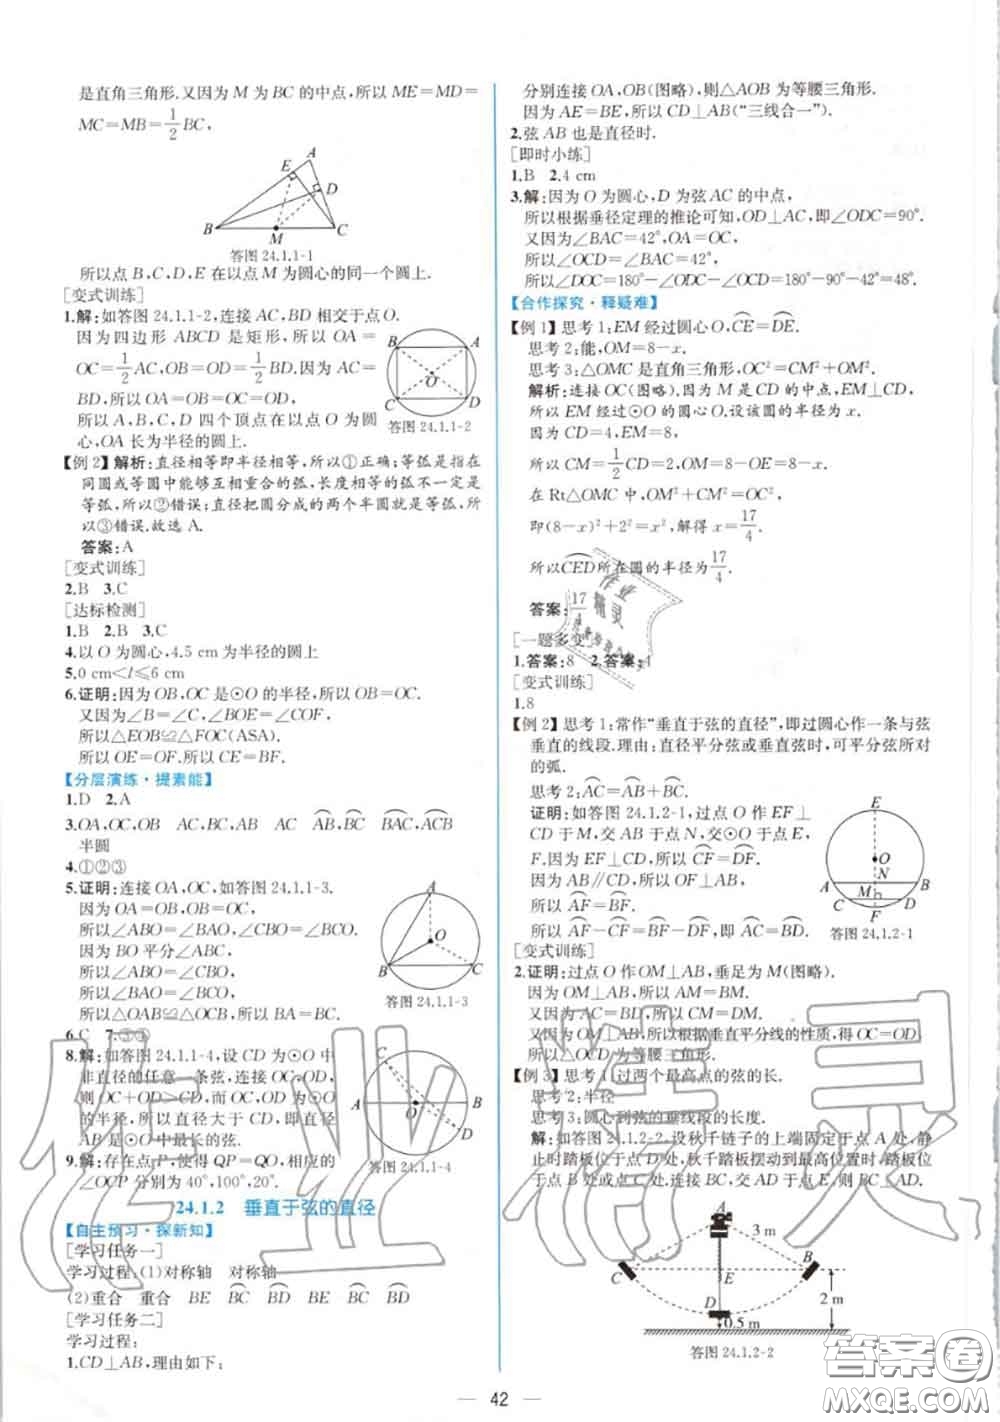 是直角三角形.又因为 M 为 BC 的中点,所以 ME=MD=
MC=MB=1/2BC,
A
E
D
B
M
C
答图 24.1.1-1
所以点 B,C,D,E 在以点 M 为圆心的同一个圆上.
[变式训练]
1.解:如答图 24.1.1-2,连接 AC,BD 相交于点 O.
因为四边形 ABCD 是矩形,所以 OA=
OC=1/2AC,OB=OD=1/2BD.因为 AC=
BD,所以 OA=OB=OC=OD.
所以 A,B,C,D 四个顶点在以点 O 为圆
心,OA 长为半径的圆上.
B
A
O
C
D
答图 24.1.1-2
【例 2】解析:直径相等即半径相等,所以①正确;等弧是指在
同圆或等圆中能够互相重合的弧,长度相等的弧不一定是
等弧,所以②错误;直径把圆分成的两个半圆就是等弧,所
以③错误.故选 A.
答案:A
[变式训练]
2.B 3.C
[达标检测]
1.B 2.B 3.C
4.以 O 为圆心,4.5 cm 为半径的圆上
5.0 cm<l≤6 cm
6.证明:因为 OB,OC 是⊙O 的半径,所以 OB=OC.
又因为∠B=∠C,∠BOE=∠COF,
所以△EOB≌△FOC(ASA).
所以 OE=OF.所以 CE=BF.
【分层演练·提素能】
1.D 2.A
3.OA,OC,OB AC,BC,AB AC AB,BC BAC,ACB
半圆
4.①②③
5.证明:连接 OA,OC,如答图 24.1.1-3.
因为 OA=OB,OB=OC,
所以∠ABO=∠BAO,∠CBO=∠BCO.
因为 BO 平分∠ABC,
所以∠ABO=∠CBO.
所以∠BAO=∠BCO.
所以△OAB≌△OCB.所以 BA=BC.
A
O
B
C
答图 24.1.1-3
6.C 7.③③
8.解:如答图 24.1.1-4,设 CD 为⊙O 中
非直径的任意一条弦,连接 OC,OD,
则 OC+OD>CD,而 OC,OD 为⊙O
的半径,所以直径大于 CD,即直径
AB 是⊙O 中最长的弦.
C
A
O
B
D
答图 24.1.1-4
9.解:存在点 P,使得 QP=QO,相应的
∠OCP 分别为 40°,100°,20°.
24.1.2 垂直于弦的直径
【自主预习·探新知】
[学习任务一]
学习过程:(1)对称轴 对称轴
(2)重合 重合 BE BC BD BE BC BD
[学习任务二]
学习过程:
1.CD⊥AB,理由如下:
分别连接 OA,OB(图略),则△AOB 为等腰三角形.
因为 AE=BE,所以 CD⊥AB(“三线合一”).
2.弦 AB 也是直径时.
[即时小练]
1.B 2.4 cm
3.解:因为 O 为圆心,D 为弦 AC 的中点,
所以根据垂径定理的推论可知,OD⊥AC,即∠ODC=90°.
又因为∠BAC=42°,OA=OC,
所以∠OCD=∠BAC=42°,
所以∠DOC=180°-∠ODC-∠OCD=180°-90°-42°=48°.
【合作探究·释疑难】
【例 1】思考 1:EM 经过圆心 O,CE=DE.
思考 2:能,OM=8-x.
思考 3:△OMC 是直角三角形,OC²=CM²+OM².
解析:连接 OC(图略).因为 M 是 CD 的中点,EM⊥CD,
所以 EM 经过⊙O 的圆心 O.设该圆的半径为 x.
因为 CD=4,EM=8,
所以 CM=1/2CD=2,OM=8-OE=8-x.
在 Rt△OMC 中,OM²+CM²=OC²,
即(8-x)²+2²=x²,解得 x=17/4.
所以CED所在圆的半径为17/4.
答案:17/4
[一题多变]
1.答案:8 2.答案:4
[变式训练]
1.8
【例 2】思考 1:常作“垂直于弦的直径”,即过圆心作一条与弦
垂直的线段.理由:直径平分弦或垂直弦时,可平分弦所对
的弧.
思考 2:AC=AB+BC.
证明:如答图 24.1.2-1,过点 O 作 EF⊥
CD 于 M,交 AB 于点 N,交⊙O 于点 E,
F.因为 EF⊥CD,所以 CF=DF.
因为 AB∥CD,所以 OF⊥AB.
所以 AF=BF.
所以 AF-CF=BF-DF,即 AC=BD.
E
O
N
A
B
M
C
D
F
答图 24.1.2-1
[变式训练]
2.证明:过点 O 作 OM⊥AB,垂足为 M(图略).
因为 OM⊥AB,所以 AM=BM.
因为 AC=BD,所以 CM=DM.
又因为 OM⊥AB,所以根据垂直平分线的性质,得 OC=OD.
所以△OCD 为等腰三角形.
【例 3】思考 1:过两个最高点的弦的长.
思考 2:半径
思考 3:圆心到弦的垂线段的长度.
解:如答图 24.1.2-2,设秋千链子的上端固定于点 A 处,静
止时踏板位于点 D 处,秋千踏板摆动到最高位置时,踏板位
于点 B 处和点 C 处,连接 AD,交 BC 于点 E,则 BC⊥AD.
A
3 m
C
B
E
2 m
D
0.5 m
答图 24.1.2-2
42
作业精灵
作业
精灵
答案圈
MXQE.COM